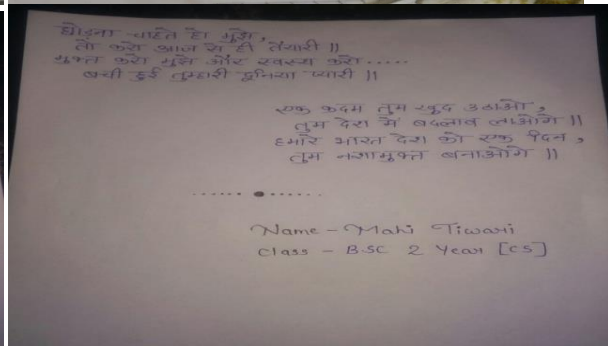 छोड़ना चाहते हो मुझे,
तो करो आज से ही तैयारी ||
मुक्त करो मुझे और स्वस्थ करो.....
बची हुई तुम्हारी दुनिया प्यारी ||
एक कदम तुम खुद उठाओ,
तुम देश में बदलाव लाओगे ||
हमारे भारत देश को एक दिन,
तुम नशामुक्त बनाओगे ||
Name - Mahi Tiwari
Class - BSC 2 Year [CS]